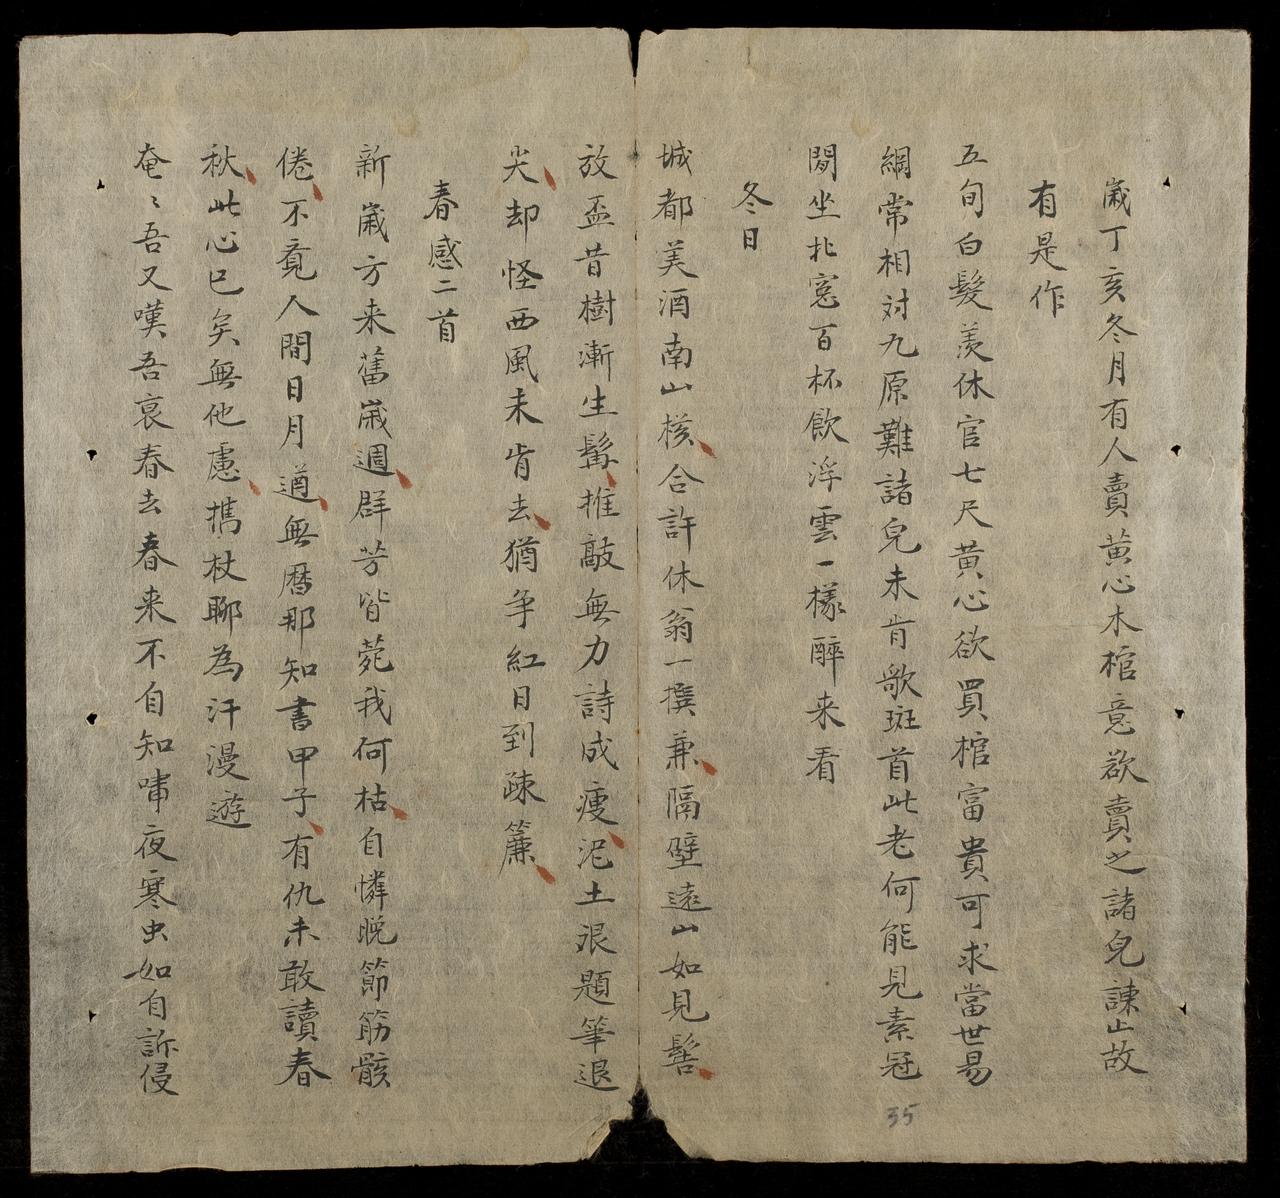 歲丁亥冬月有人賣黃心木棺意欲賣之諸兒諫止故
有是作
五旬白髮羨休官七尺黃心欲買棺富貴可求當世易
綱常相対九原難諸兒未肯歌斑首此老何能見素冠
閒坐北窓百杯飲浮雲一樣醉来看
冬日
城都美酒南山核合許休翁一撰兼隔壁遠山如見髻
放盃昔樹漸生髯推敲無力詩成瘦泥土浪題筆退
尖却怪西風未肯去猶争紅日到疎簾
春感二首
新歲方来舊歲週群芳皆菀我何枯自憐晚節筋骸
倦不覔人間日月遒無曆那知書甲子有仇未敢讀春
秋此心已矣無他慮携杖聊為汗漫遊
奄〻吾又嘆吾哀春去春来不自知啼夜寒虫如自訴侵
35